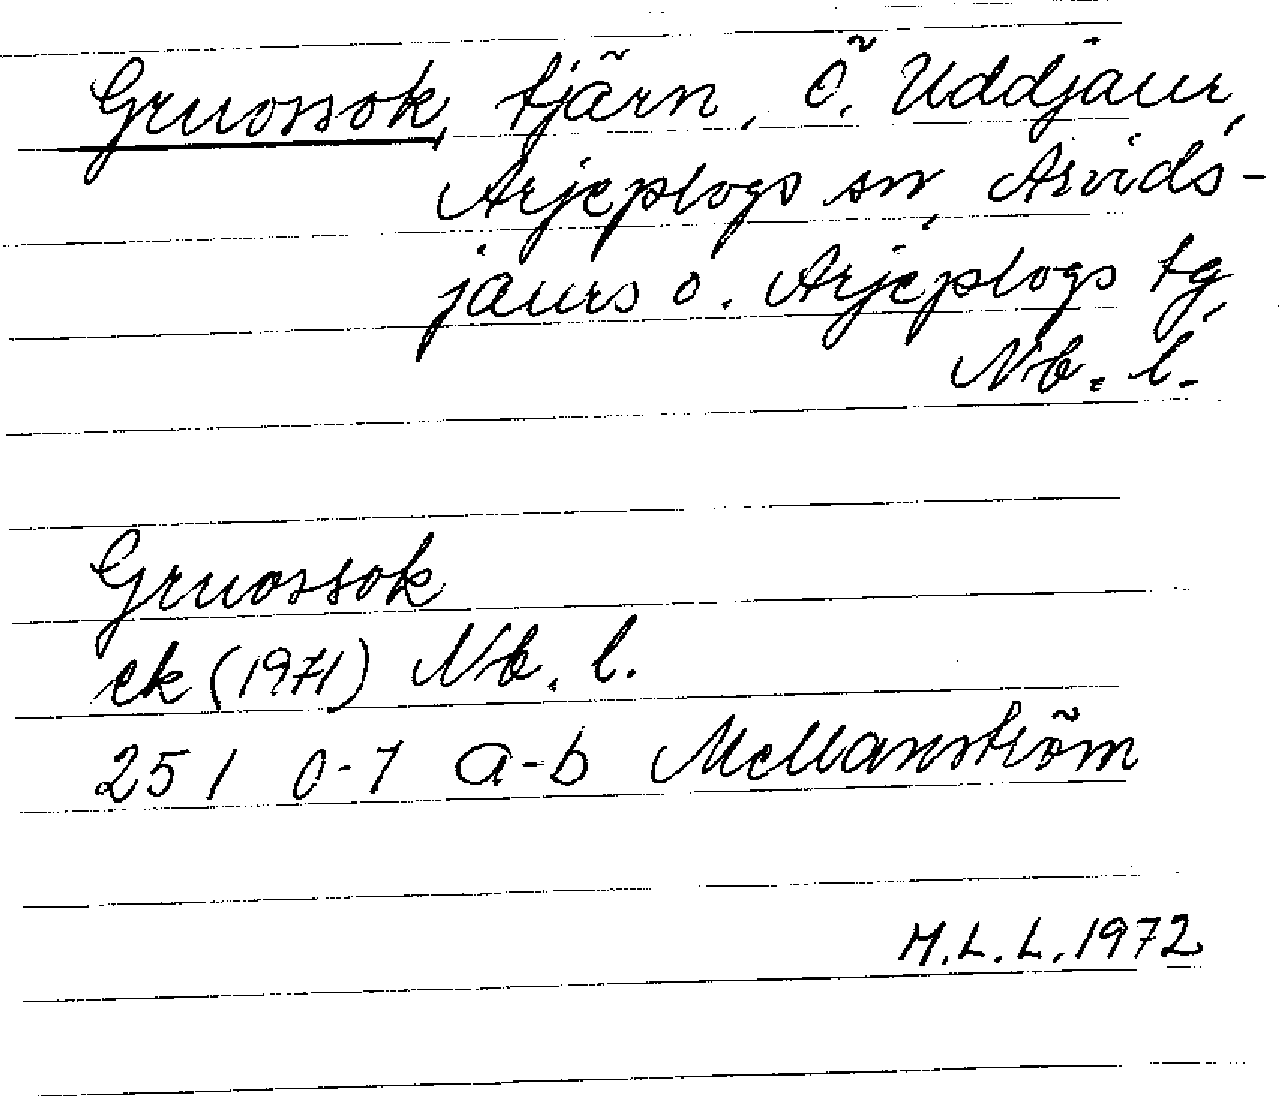 Gruossok, tjärn, Ö. Uddjaur,
Arjeplogs sn, Arvids-
jaurs o. Arjeplogs tg,
Nb. l.
Gruossok
ek (1971) Nb. l.
25 I 0-1 a-b Mellanström
M.L.L. 1972